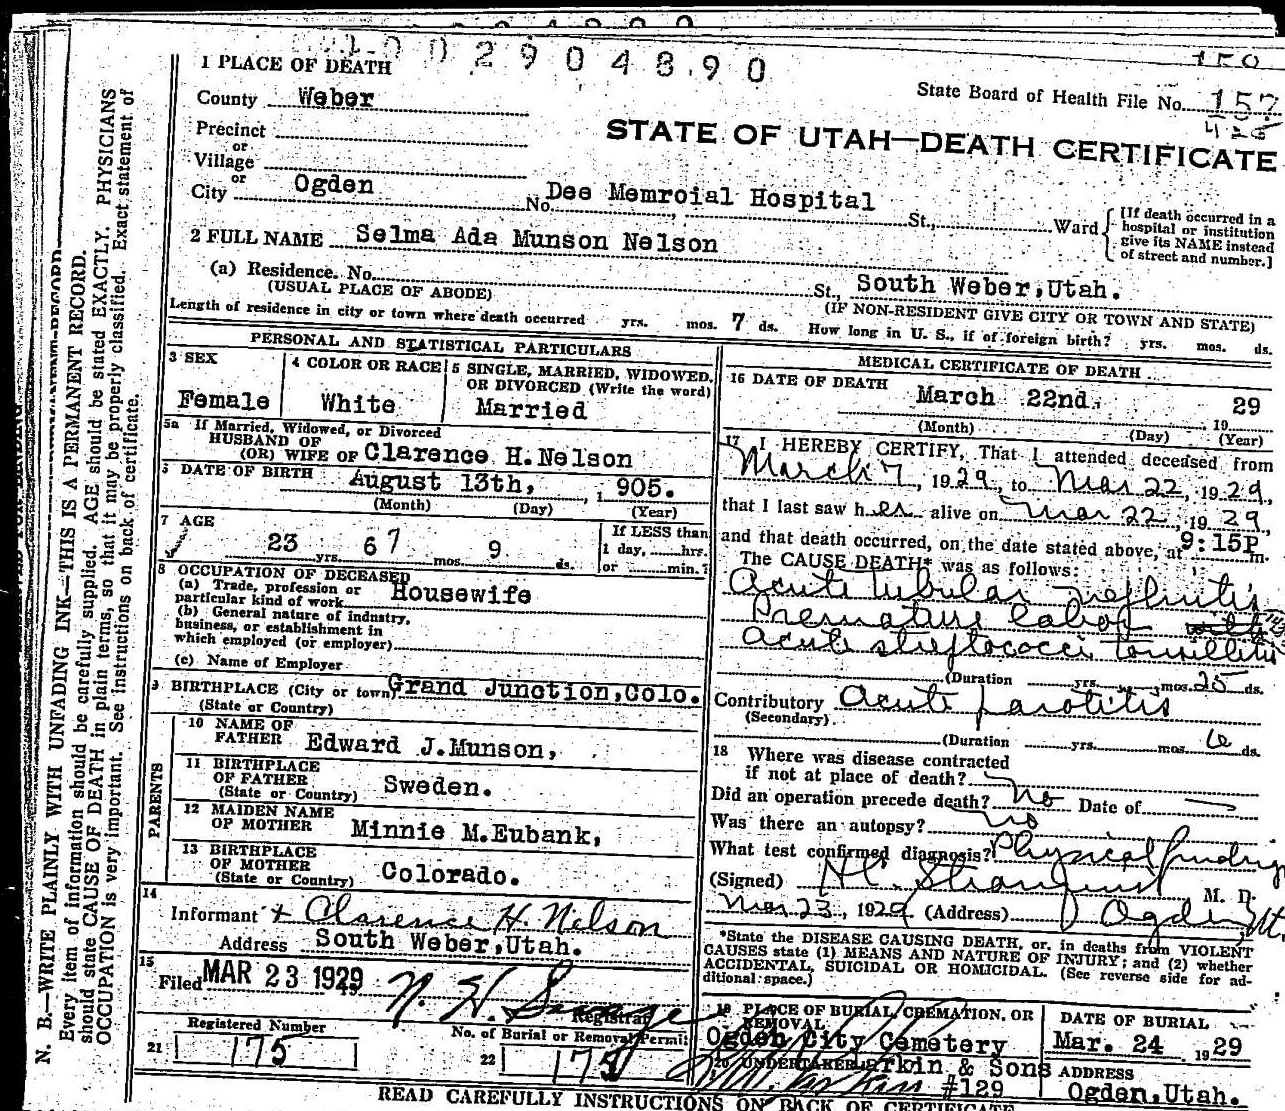 0029048.90
1 PLACE OF DEATH
County Weber
State Board of Health File No. 157
Precinct
or
Village
or
City Ogden No. Dee Memroial Hospital St., Ward
STATE OF UTAH—DEATH CERTIFICATE
[If death occurred in a
hospital or institution
give its NAME instead
of street and number.]
2 FULL NAME Selma Ada Munson Nelson
(a) Residence. No. St., South Weber, Utah.
(USUAL PLACE OF ABODE) (IF NON-RESIDENT GIVE CITY OR TOWN AND STATE)
Length of residence in city or town where death occurred yrs. mos. 7 ds. How long in U. S., if of foreign birth? yrs. mos. ds.
PERSONAL AND STATISTICAL PARTICULARS
3 SEX
Female
4 COLOR OR RACE
White
5 SINGLE, MARRIED, WIDOWED,
OR DIVORCED (Write the word)
Married
5a If Married, Widowed, or Divorced
HUSBAND OF
(OR) WIFE OF Clarence H. Nelson
DATE OF BIRTH August 13th, 1905.
(Month) (Day) (Year)
7 AGE
23 yrs. 6 7 mos. 9 ds.
If LESS than
1 day, hrs.
or min.?
8 OCCUPATION OF DECEASED
(a) Trade, profession or
particular kind of work Housewife
(b) General nature of industry,
business, or establishment in
which employed (or employer)
(c) Name of Employer
9 BIRTHPLACE (City or town) Grand Junction, Colo.
(State or Country)
PARENTS
10 NAME OF
FATHER Edward J. Munson,
11 BIRTHPLACE
OF FATHER Sweden.
(State or Country)
12 MAIDEN NAME
OF MOTHER Minnie M. Eubank,
13 BIRTHPLACE
OF MOTHER Colorado.
(State or Country)
14
Informant Clarence H. Nelson
Address South Weber, Utah.
15
Filed MAR 23 1929
Registrar
21 Registered Number 175
22 No. of Burial or Removal Permit 175
MEDICAL CERTIFICATE OF DEATH
16 DATE OF DEATH March 22nd. 1929
(Month) (Day) (Year)
17 I HEREBY CERTIFY, That I attended deceased from
March 7, 1929, to Mar 22, 1929,
that I last saw her alive on Mar 22, 1929,
and that death occurred, on the date stated above, at 9:15P m.
The CAUSE DEATH* was as follows:
Acute tubular nephritis
Premature labor with
acute streptococci tonsillitis
(Duration yrs. mos. 25 ds.
Contributory Acute parotitis
(Secondary)
(Duration yrs. mos. 6 ds.
18 Where was disease contracted
if not at place of death?
Did an operation precede death? No Date of —
Was there an autopsy? No
What test confirmed diagnosis? Physical findings
(Signed) M. D.
Mar 23, 1929 (Address) Ogden, Ut.
*State the DISEASE CAUSING DEATH, or, in deaths from VIOLENT
CAUSES state (1) MEANS AND NATURE OF INJURY; and (2) whether
ACCIDENTAL, SUICIDAL OR HOMICIDAL. (See reverse side for ad-
ditional space.)
19 PLACE OF BURIAL, CREMATION, OR
REMOVAL
Ogden City Cemetery
DATE OF BURIAL
Mar. 24 1929
20 UNDERTAKER Larkin & Sons
#129
ADDRESS
Ogden, Utah.
READ CAREFULLY INSTRUCTIONS ON BACK OF CERTIFICATE
N. B.—WRITE PLAINLY WITH UNFADING INK—THIS IS A PERMANENT RECORD.
Every item of information should be carefully supplied. AGE should be stated EXACTLY. PHYSICIANS
should state CAUSE OF DEATH in plain terms, so that it may be properly classified. Exact statement of
OCCUPATION is very important. See instructions on back of certificate.